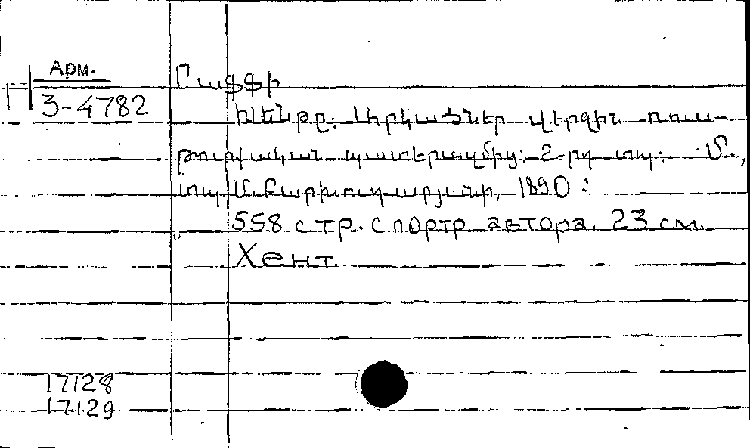 Арм.
3-4782
Րաֆֆի
Խենթը. Պատկերներ վերջին ռուս-
թուրքական պատերազմից: 2-րդ տպ: Մ.,
տպ. Մ. Բարխուդարյանի, 1890:
558 стр. с портр. автора. 23 см.
Хент
17128
17129